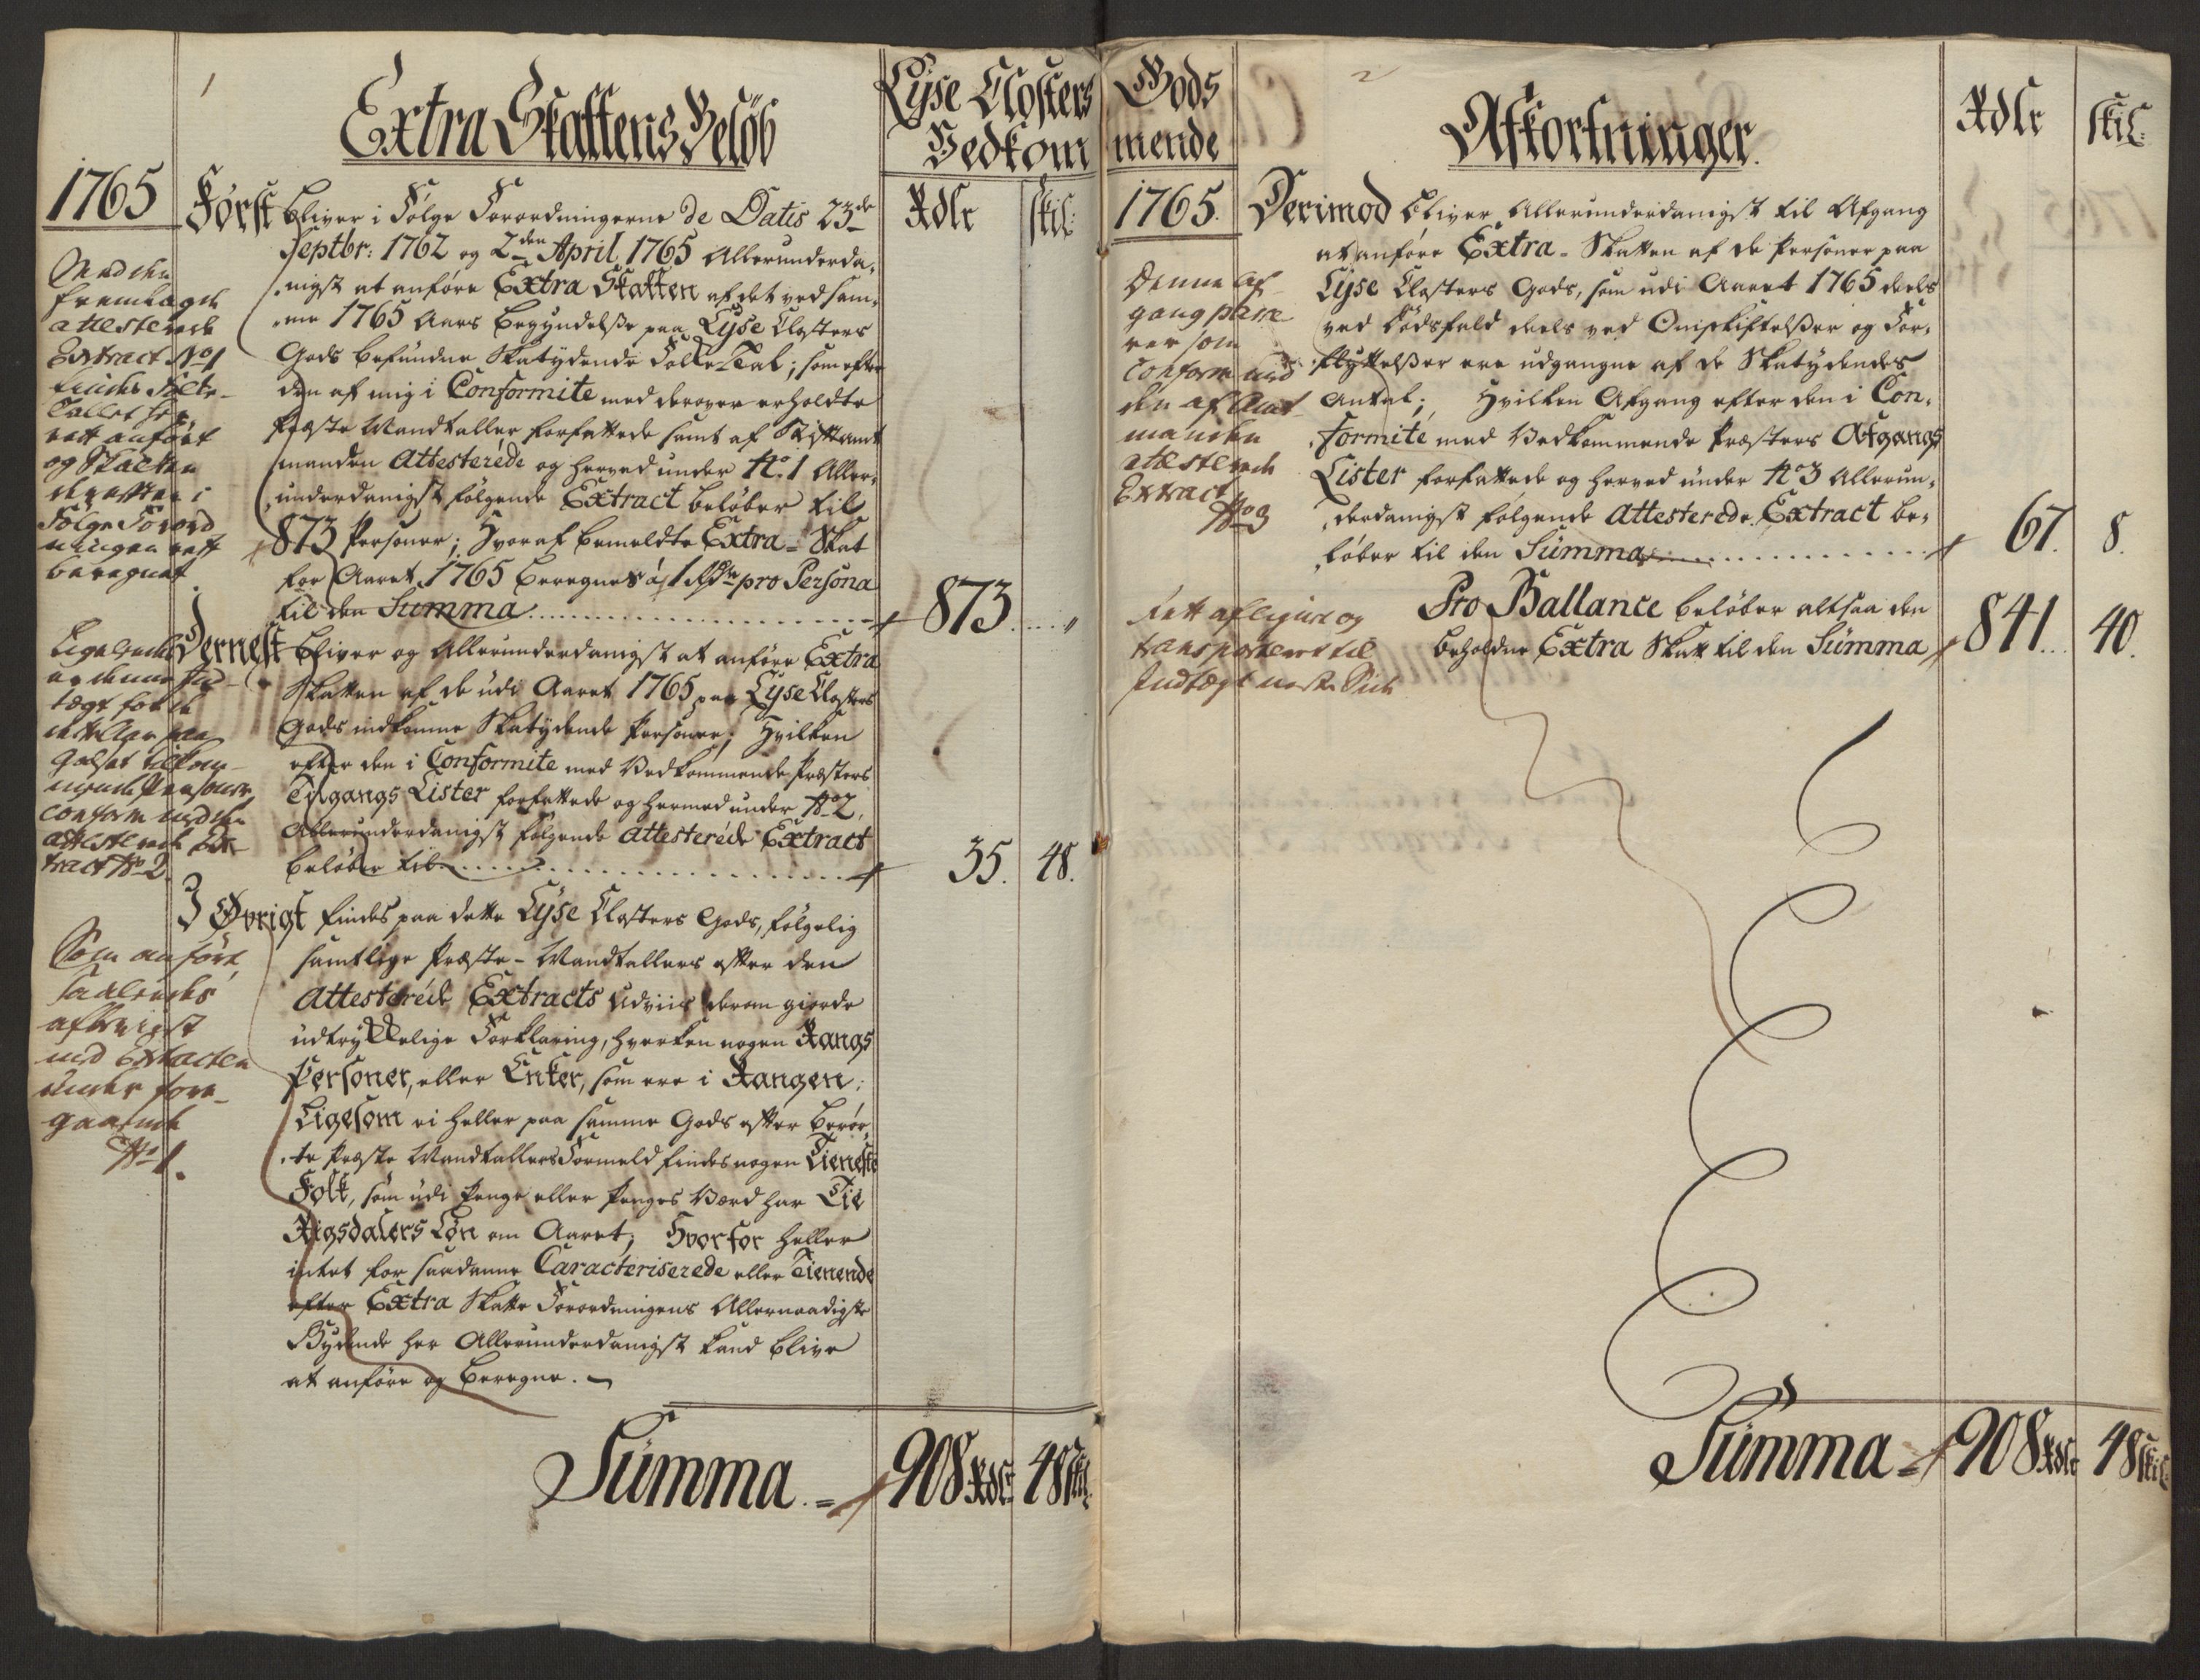 1
Extra Skattens Beløb
Lyse Closters
Vedkom
Rdlr
skil:
1765
Først bliver i Følge Forordningerne de Datis 23de
Septbr: 1762 og 2den April 1765 Allerunderda„
„nigst at anføre Extra Skatten af det ved sam„
„me 1765 Aars Begyndelse paa Lyse Closters
Gods befundne Skatydende Folke Tal; som efter
den af mig i Conformite med derover erholdte
Præste Mandtaller forfattede samt af Stiftamt
manden Attesterede og herved under No. 1 Aller„
„underdanigst følgende Extract beløber til
873 Personer; Hvoraf bemeldte Extra-Skat
for Aaret 1765 beregnes á 1 Rdr pro Persona
til den Summa
873
"
Med den
fremlagde
attesterede
Extract No 1
findes Folke-
Tallet
rett anført
og Skatten
derefter i
Følge Forord
ningen rett
beregnet
Dernest bliver og Allerunderdanigst at anføre Extra
Skatten af de udi Aaret 1765 paa Lyse Closters
Gods indkomne Skatydende Personer; Hvilken
efter den i Conformite med Vedkommende Præsters
Tilgangs Lister forfattede og hermed under No 2.
Allerunderdanigst følgende Attesterede Extract
beløber til
35.
48.
Ligeledes
er denne Ind-
tægt for de
Godset tilkom-
mende Personer,
conform med den
attesterede Ex-
tract No 2
I Øvrigt findes paa dette Lyse Closters Gods, følgelig
samtlige Præste-Mandtallers efter den
Attesterede Extracts Udviis derom giorde
udtrykkelige Forklaring, hverken nogen Rangs
Personer, eller Enker, som ere i Rangen;
Ligesom ei heller paa samme Gods efter berør„
„te Præste Mandtallers Formeld findes nogen Tieneste
Folk, som udi Penge eller Penges Værd har Tie
Rigsdalers Løn om Aaret; Hvorfor heller
intet for saadanne Caracteriserede eller Tienende
efter Extra Skatte Forordningens Allernaadigste
Bydende her Allerunderdanigst kand blive
at anføre og beregne.
Som anført,
saaledes
med Extracten
under fore-
gaaende
No 1.
Summa
908 Rdlr
48 skil.
2
Gods
mende
Afkortninger.
Rdlr
skil:
1765.
Derimod bliver Allerunderdanigst til Afgang
at anføre Extra-Skatten af de Personer paa
Lyse Closters Gods, som udi Aaret 1765 deels
ved Dødsfald deels ved Omskiftelser og For„
„flyttelser ere udgangne af de Skatydendes
Antal; Hvilken Afgang efter den i Con„
„formite med Vedkommende Præsters Afgangs
Lister forfattede og herved under No 3 Allerun„
„derdanigst følgende Attesterede Extract be„
„løber til den Summa
67.
8.
Denne Af-
gang
som
conform med
den af Amt
manden
attesterede
Extract
No 3
Pro Ballance beløber altsaa den
beholdne Extra Skatt til den Summa
841
40.
Rett og
transporteret til
Indtægt neste Side
Summa
908 Rdlr
48 skil: